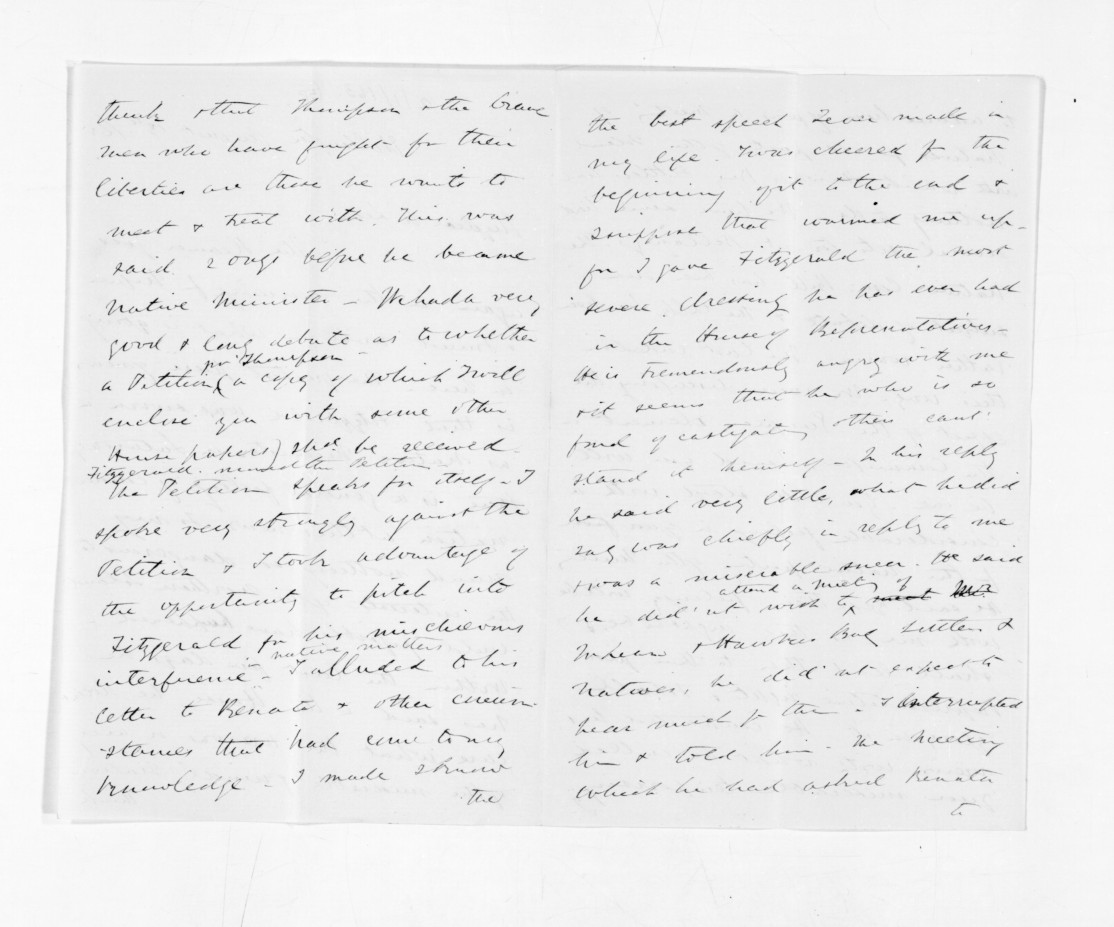 think & that Thompson & the brave
men who have fought for their
liberties are those he wants to
meet & treat with. This was
said 2 days before he became
Native Minister – We had a very
good & long debate as to whether
pr Thompson –
a Petition (a copy of which I will
enclose you with some other
House papers) shd. be received.
Fitzgerald moved the Petition
The Petition speaks for itself – I
spoke very strongly against the
Petition & I took advantage of
the opportunity to pitch into
Fitzgerald for his mischievous
native matters
interference in – I alluded to his
letter to Renata & other circum-
stances that had come to my
knowledge – I made I know
the
the best speech I ever made in
my life. I was cheered fr the
beginning of it to the end &
I suppose that warmed me up –
for I gave Fitzgerald the most
severe dressing he has ever had
in the House of Representatives –
He is tremendously angry with me
& it seems that he who is so
fond of castigating others can't
stand it himself – In his reply
he said very little, what he did
say was chiefly in reply to me
& was a miserable sneer. He said
attend a meeting of
he did'nt wish to meet Mr.
McLean & Hawkes Bay Settlers &
Natives, he did'nt expect to
hear much fr them – I interrupted
him & told him – the meeting
which he had asked Renata
to